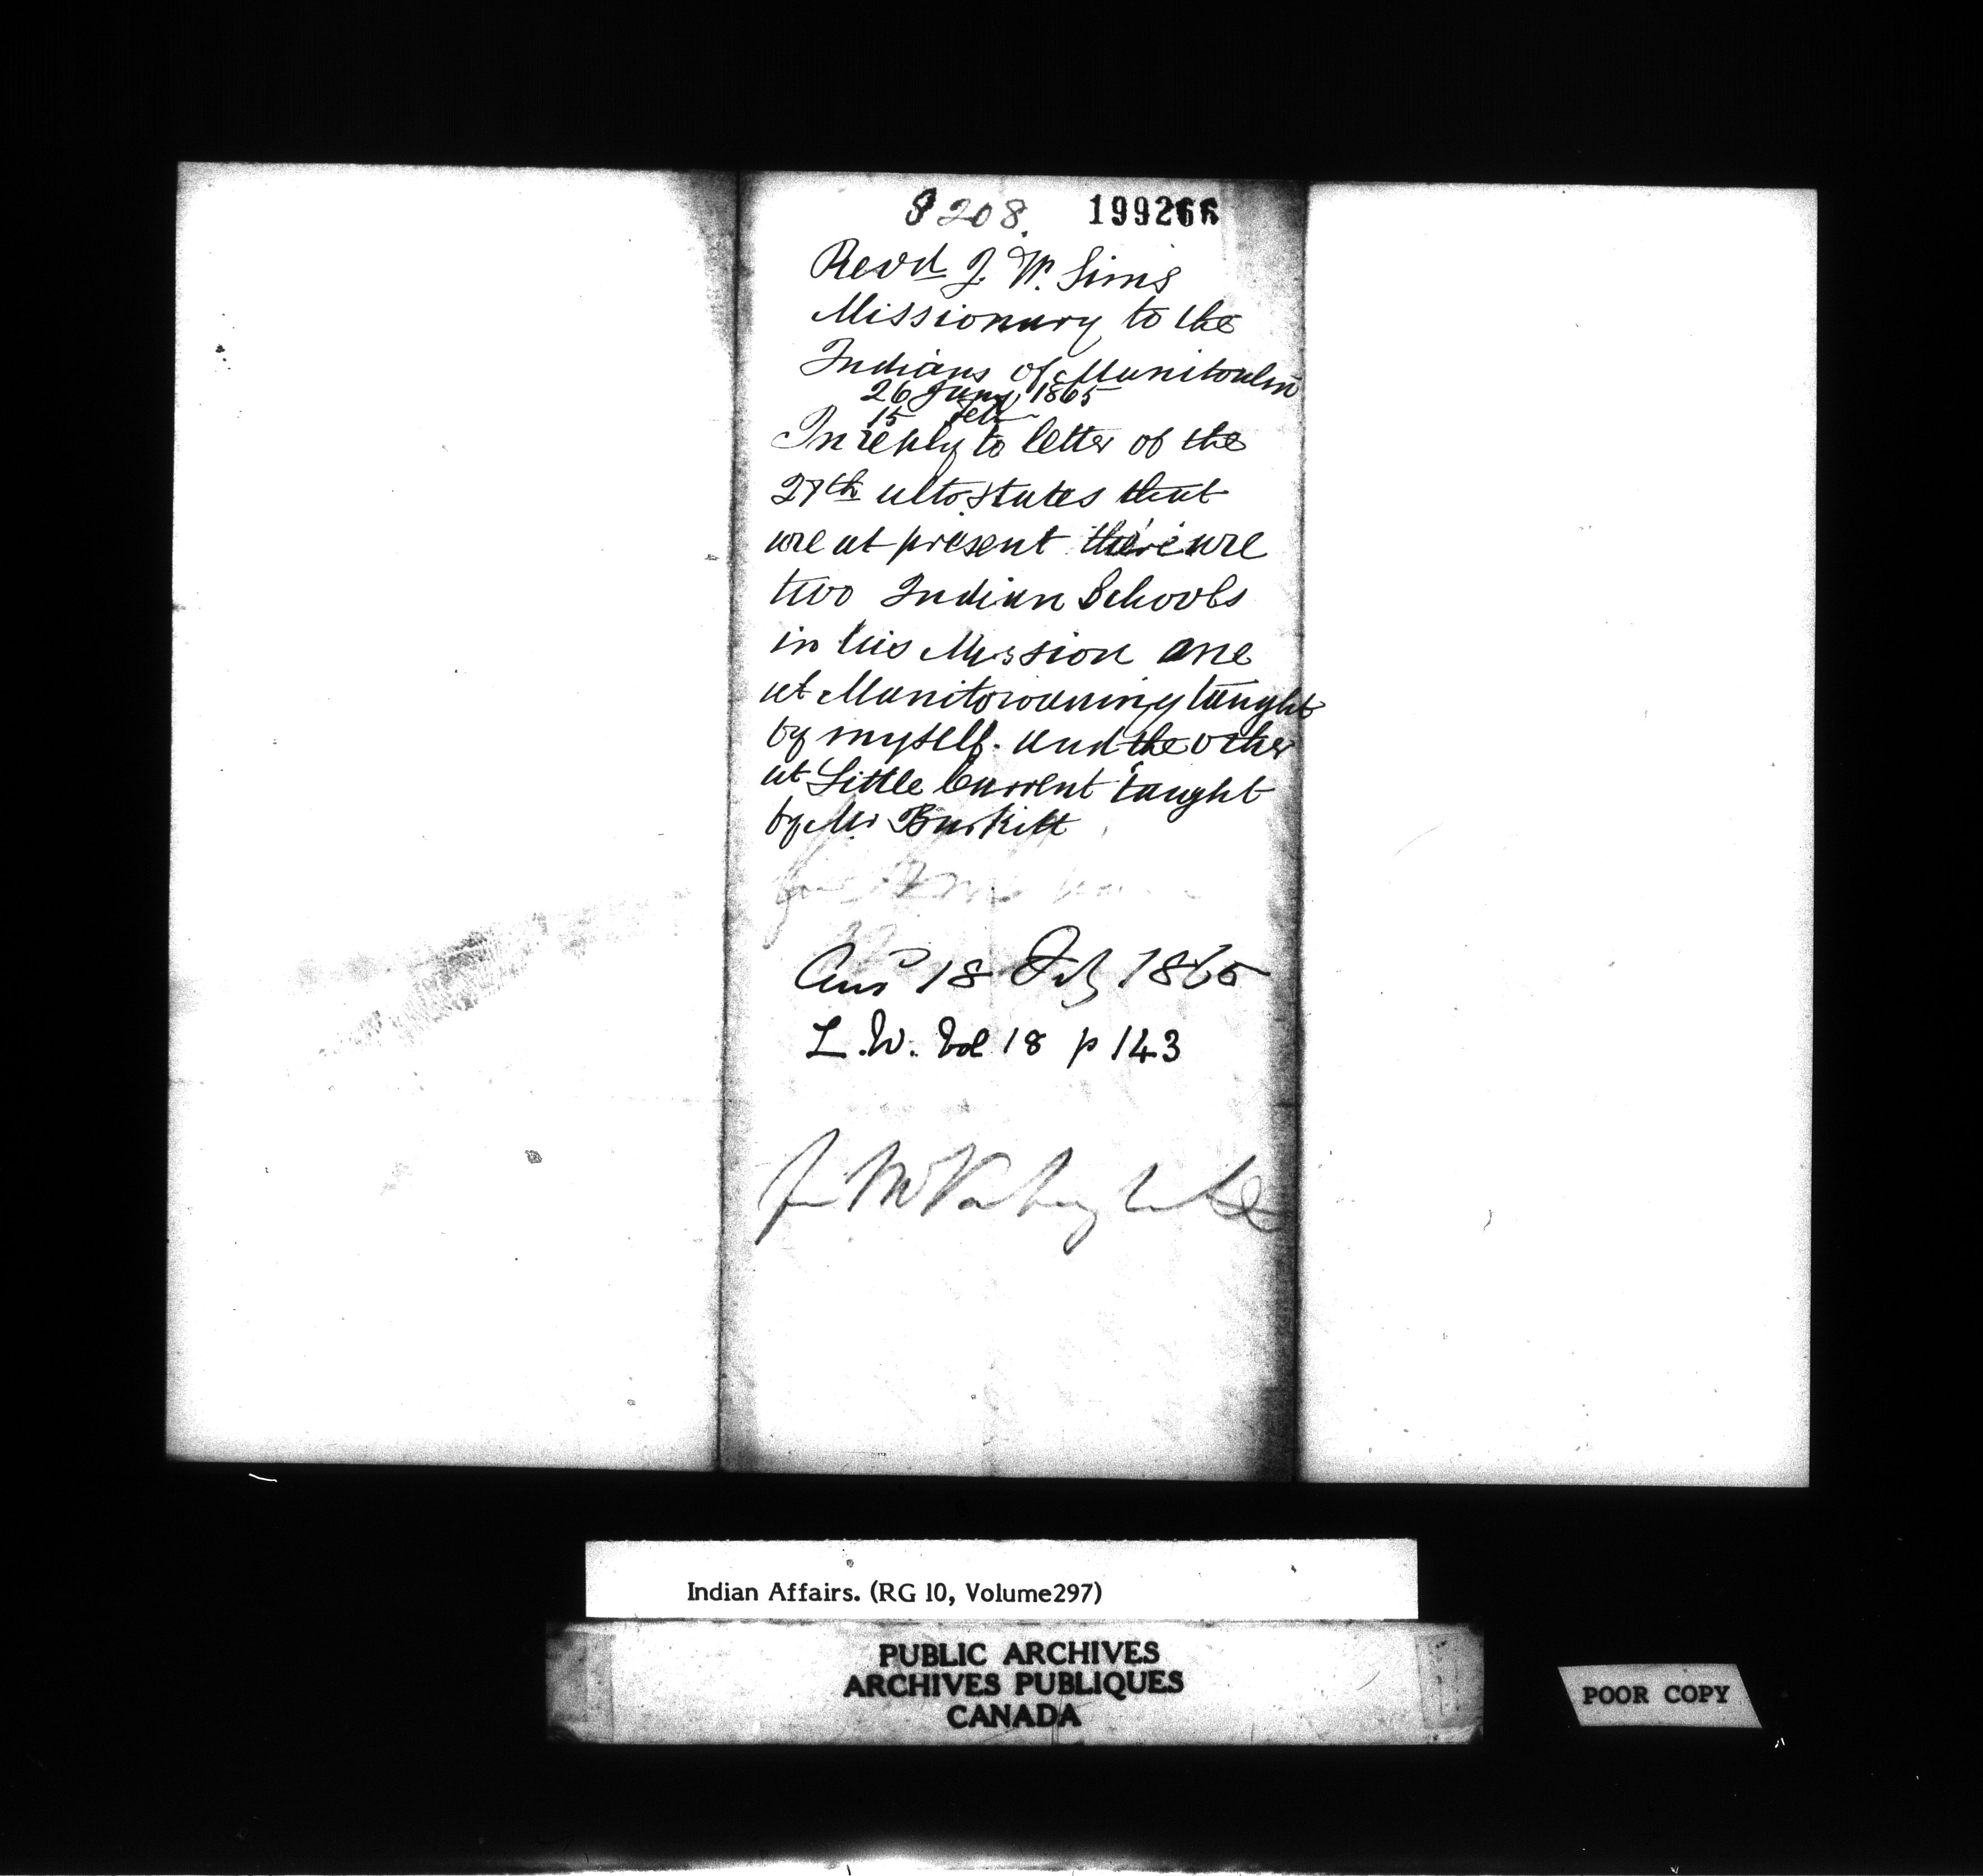 S 208. 199266
Revd J. W. Sims
Missionary to the
Indians of Manitoulin
26 Jany 1865
15 Feb
In reply to letter of the
27th ulto. states that
are at present there are
two Indian Schools
in his Mission one
at Manitowaning taught
by myself. and the other
at Little Current taught
by Mr Burkitt
Ansd 18 Feby 1865
L.W. Vol 18 p 143
Indian Affairs. (RG 10, Volume297)
PUBLIC ARCHIVES
ARCHIVES PUBLIQUES
CANADA
POOR COPY